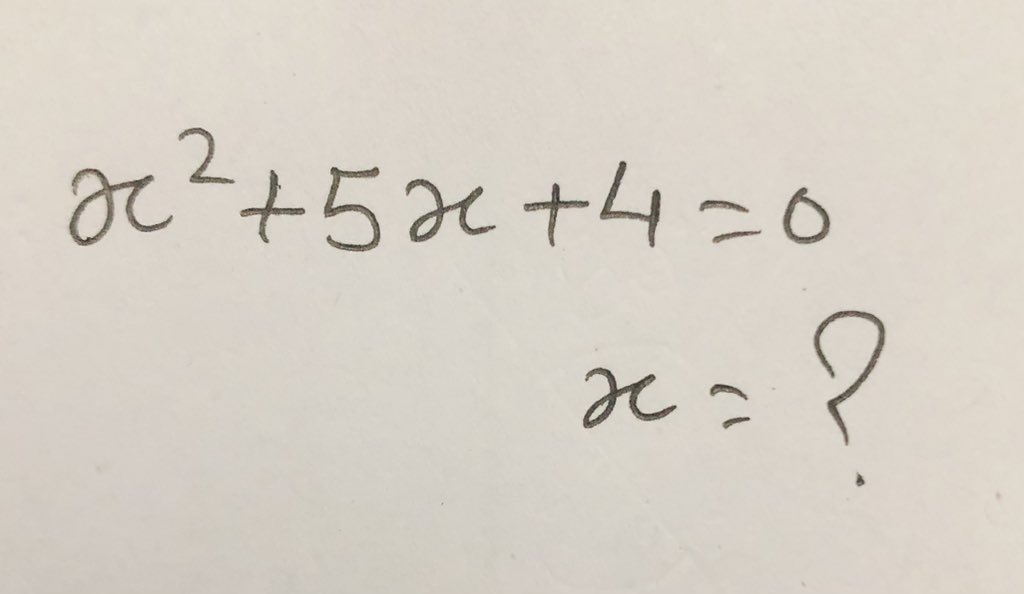 x²+5x+4=0
x=?